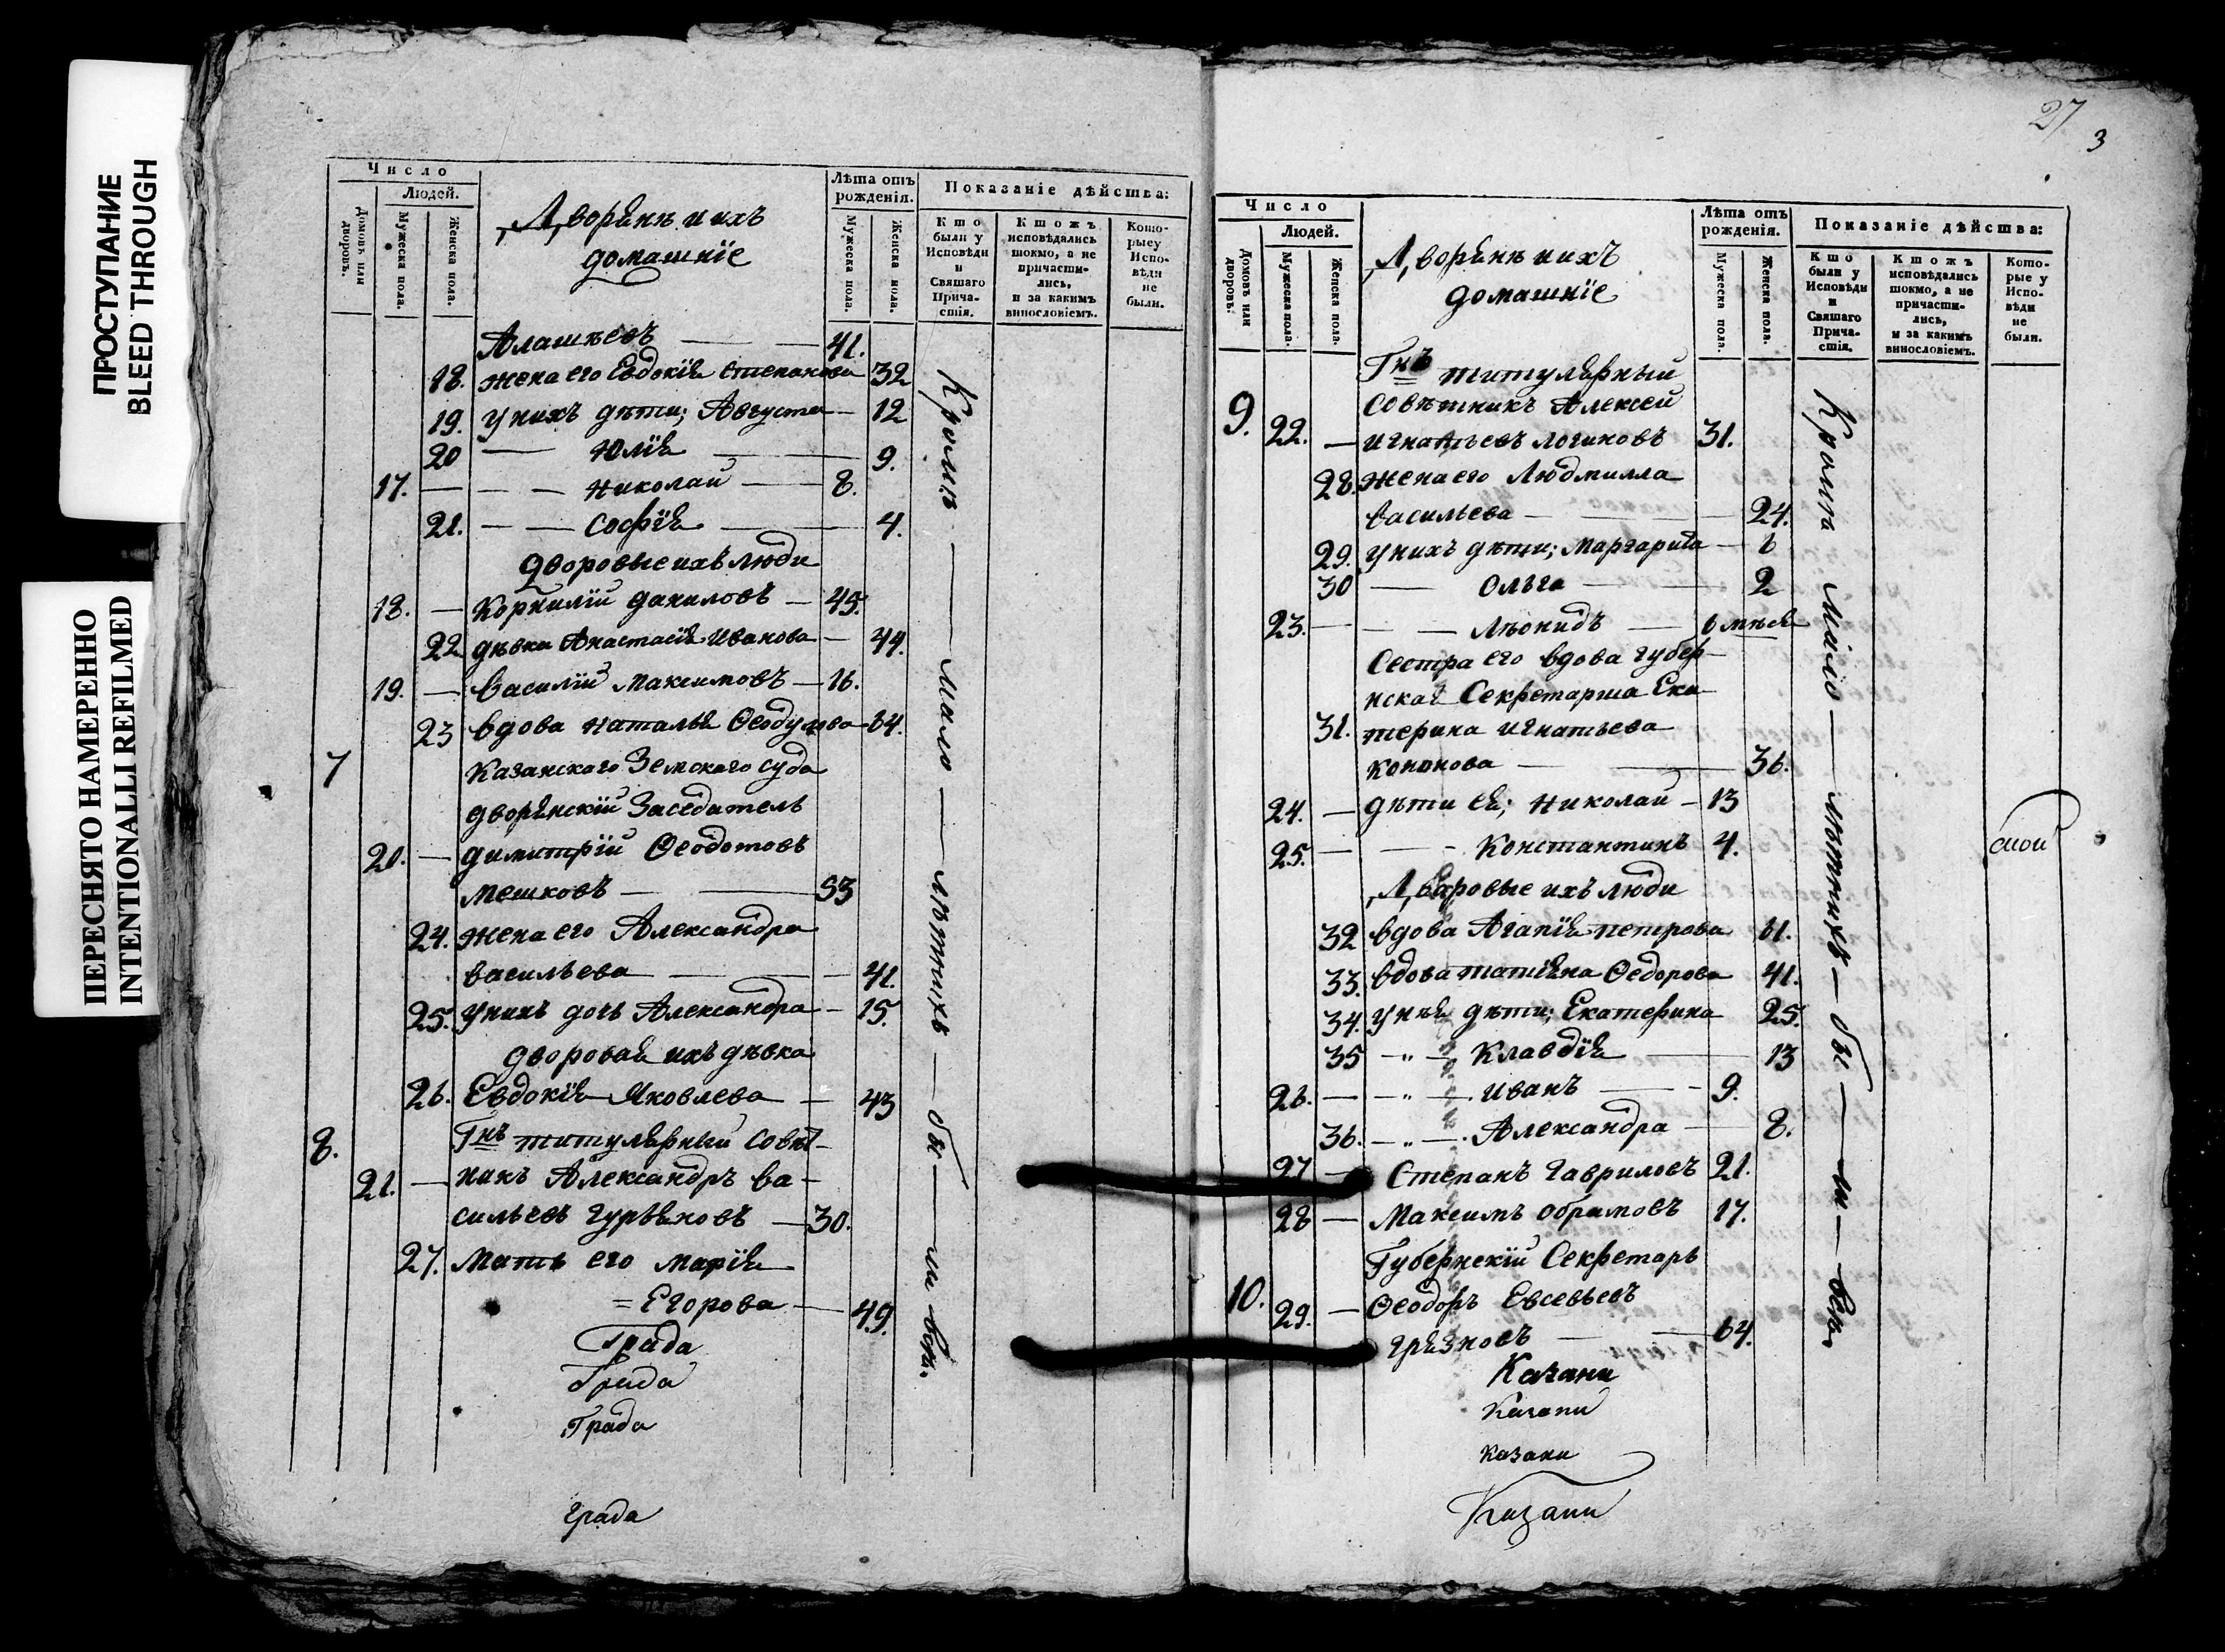 ПРОСТУПАНИЕ
BLEED THROUGH
ПЕРЕСНЯТО НАМЕРЕННО
INTENTIONALLI REFILMED
Число
Людей.
Домовъ или дворовъ.
Мужеска пола.
Женска пола.
Дворяне и ихъ
домашніе
Лѣта отъ рожденія.
Мужеска пола.
Женска пола.
Показаніе дѣйства:
Кто были у Исповѣди и Святаго Причастія.
Ктожъ исповѣдались токмо, а не причастились, и за какимъ винословіемъ.
Которые у Исповѣди не были.
Алашѣевъ — 41.
18. жена его Евдокія Степанова 32
19. у нихъ дѣти; Августа — 12
20 — Юлія — 9.
17. — Николай — 8.
21. — Софія — 4.
дворовые ихъ люди
18. — Корнилій Даниловъ — 45.
22 дѣвка Анастасія Иванова — 44.
19. — Василій Максимовъ — 16.
23 вдова Наталья Ѳеодулова 64.
7 Казанскаго Земскаго суда
дворянскій Заседатель
20. — Димитрій Ѳеодотовъ
Мешковъ — 53
24. жена его Александра
Васильева — 41.
25. у нихъ дочь Александра — 15.
дворовая ихъ дѣвка
26. Евдокія Яковлева — 43
8. Гнъ титулярный совѣт-
21. — никъ Александръ Ва-
сильевъ Гурьяновъ — 30.
27. Мать его Марія
= Егорова — 49.
Кромѣ — мало — лѣтнихъ — бы — ли всѣ.
Града
Града
Града
Града
27
3
Число
Людей.
Домовъ или дворовъ.
Мужеска пола.
Женска пола.
Дворяне и ихъ
домашніе
Лѣта отъ рожденія.
Мужеска пола.
Женска пола.
Показаніе дѣйства:
Кто были у Исповѣди и Святаго Причастія.
Ктожъ исповѣдались токмо, а не причастились, и за какимъ винословіемъ.
Которые у Исповѣди не были.
Гнъ титулярный
Совѣтникъ Алексей
9. 22. — Игнатьевъ Логиновъ 31.
28. жена его Людмилла
Васильева — 24.
29. у нихъ дѣти; Маргарита — 6
30 — Ольга — 2
23. — Лѣонидъ — 6 мѣся
Сестра его вдова губер-
нская Секретарша Ека-
31. терина Игнатьева
Кононова — 36.
24. — дѣти ея; Николай — 13
25. — Константинъ 4.
Дворовые ихъ люди
32 вдова Агапія Петрова 61.
33. вдова Татіяна Ѳедорова 41.
34. у нея дѣти; Екатерина 25.
35 — „ — Клавдія — 13
26. — „ — Иванъ — 9.
36. — „ — Александра — 8.
27 — Степанъ Гавриловъ 21.
28 — Максимъ Обрамовъ 17.
Губернскій Секретарь
10. 29. — Ѳеодоръ Евсевьевъ
Грязновъ — 64.
Кромѣ мало — лѣтнихъ — бы — ли — всѣ.
Казани
Казани
Казани
Казани